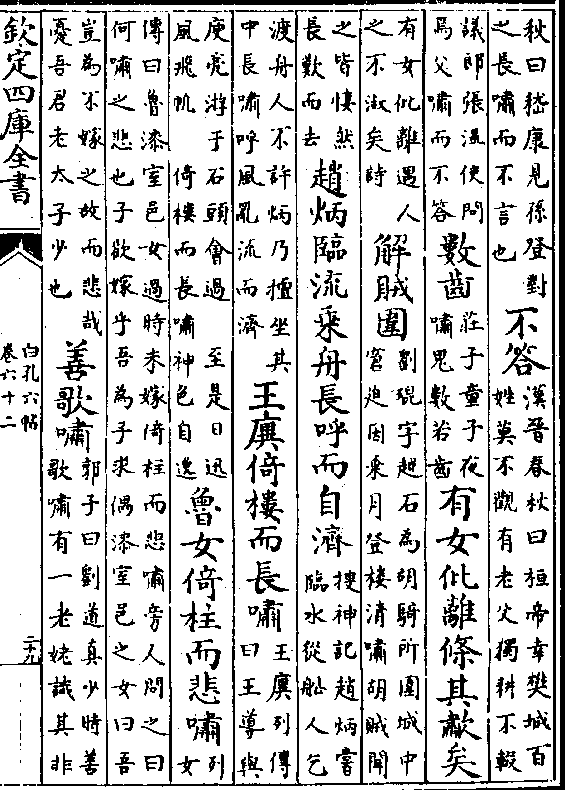 秋曰嵇康見孫登對
之長嘯而不言也
不答
漢晉春秋曰桓帝幸樊城百
姓莫不觀有老父獨耕不輟
議郎張温使問
焉父嘯而不答
數齒
莊子童子夜
嘯鬼數若齒
有女仳離條其歗矣
有女仳離遇人
之不淑矣時
解賊圍
劉琨字越石為胡騎所圍城中
窘迫因乘月登樓清嘯胡賊聞
之皆悽然
長歎而去
趙炳臨流乘舟長呼而自濟
搜神記趙炳嘗
臨水從船人乞
渡舟人不許炳乃檀坐其
中長嘯呼風亂流而濟
王廙倚樓而長嘯
王廙列傳
曰王導與
庾亮游于石頭會過 至是日迅
風飛帆 倚樓而長嘯神色自逸
魯女倚柱而悲嘯
列
女
傳曰魯漆室邑女過時未嫁倚柱而悲嘯旁人問之曰
何嘯之悲也子欲嫁乎吾為子求偶漆室邑之女曰吾
豈為不嫁之故而悲哉
憂吾君老太子少也
善歌嘯
郭子曰劉道真少時善
歌嘯有一老姥識其非
欽定四庫全書
白孔六帖
卷六十二
二十九